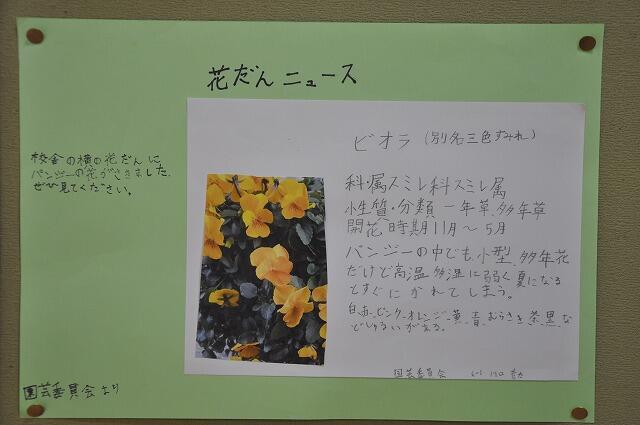 花だんニュース
校舎の横の花だんに
パンジーの花がさきました。
ぜひ見てください。
園芸委員会より
ビオラ(別名三色すみれ)
科・属スミレ科スミレ属
性質・分類 一年草、多年草
開花時期11月〜5月
パンジーの中でも、小型、多年花
だけど高温多湿に弱く夏になる
とすぐにかれてしまう。
白、赤、ピンク、オレンジ、黄、青、むらさき、茶、黒、な
どしゅるいがある。
園芸委員会